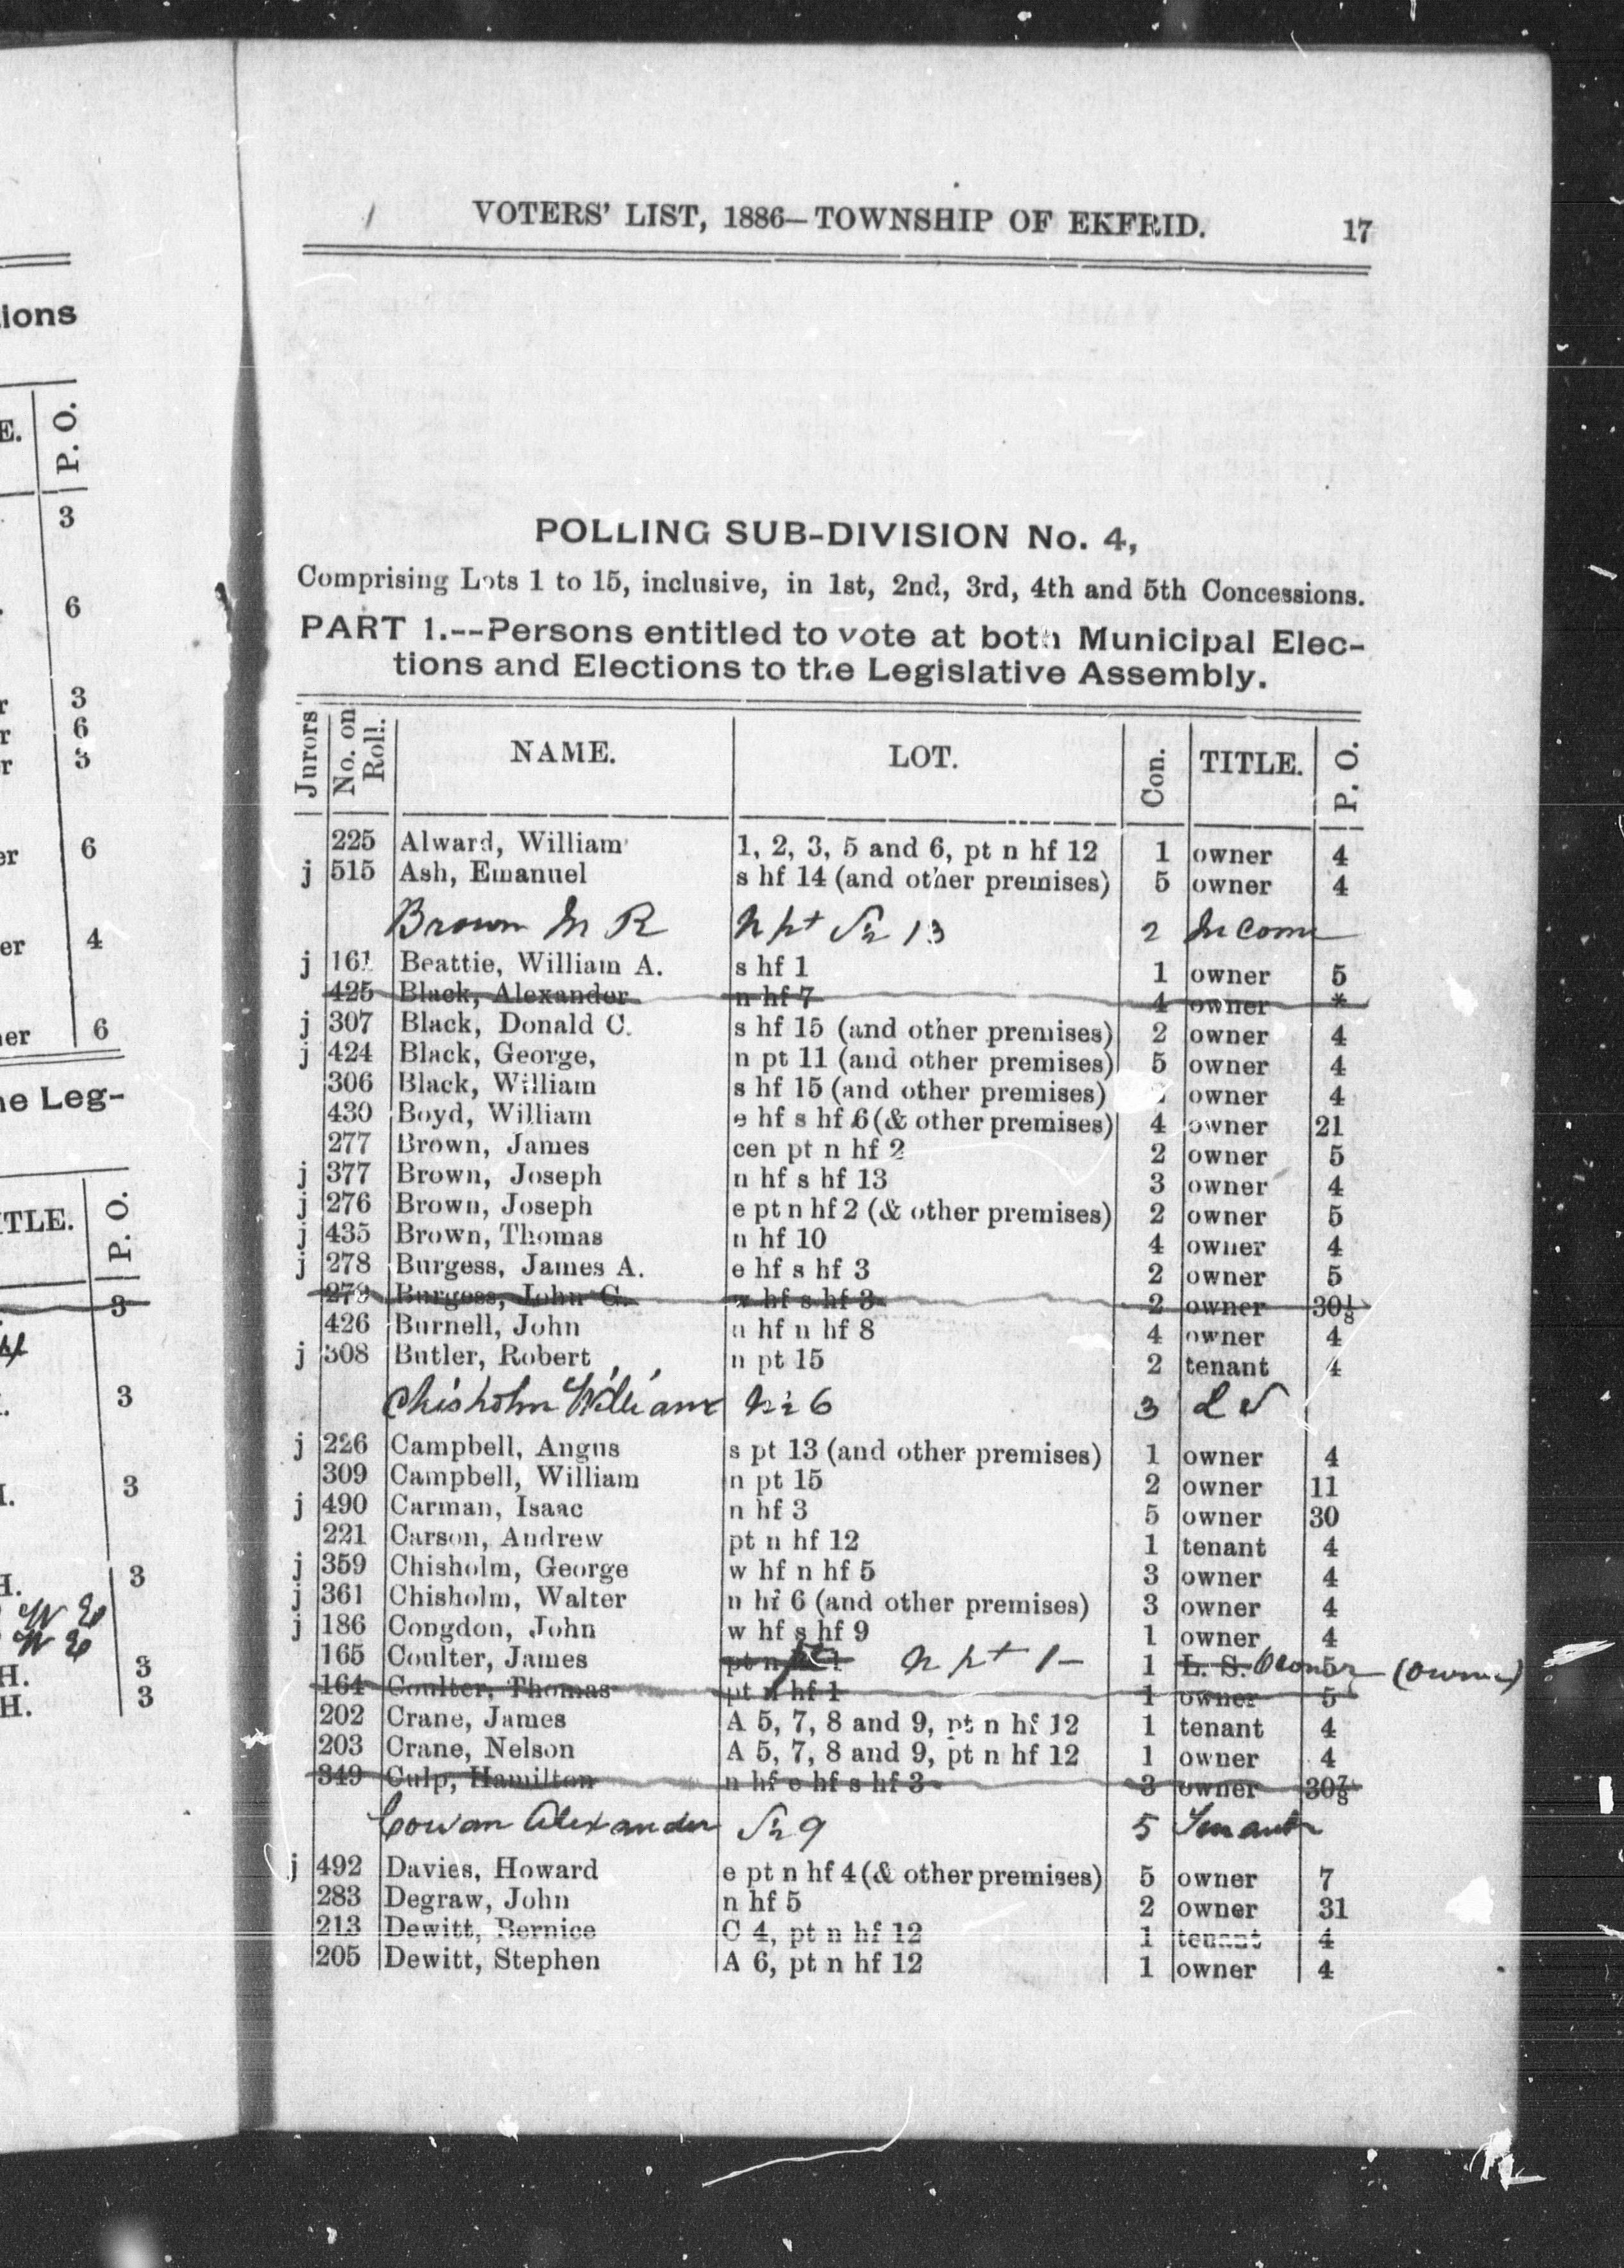 VOTERS' LIST, 1886—TOWNSHIP OF EKFRID. 17
POLLING SUB-DIVISION No. 4,
Comprising Lots 1 to 15, inclusive, in 1st, 2nd, 3rd, 4th and 5th Concessions.
PART 1.--Persons entitled to vote at both Municipal Elec-
tions and Elections to the Legislative Assembly.
Jurors No. on Roll. NAME. LOT. Con. TITLE. P. O.
225 Alward, William 1, 2, 3, 5 and 6, pt n hf 12 1 owner 4
j 515 Ash, Emanuel s hf 14 (and other premises) 5 owner 4
Brown M R N pt S½ 13 2 Income
j 161 Beattie, William A. s hf 1 1 owner 5
425 Black, Alexander n hf 7 4 owner *
j 307 Black, Donald C. s hf 15 (and other premises) 2 owner 4
j 424 Black, George, n pt 11 (and other premises) 5 owner 4
306 Black, William s hf 15 (and other premises) owner 4
430 Boyd, William e hf s hf 6 (& other premises) 4 owner 21
277 Brown, James cen pt n hf 2 2 owner 5
j 377 Brown, Joseph n hf s hf 13 3 owner 4
j 276 Brown, Joseph e pt n hf 2 (& other premises) 2 owner 5
j 435 Brown, Thomas n hf 10 4 owner 4
j 278 Burgess, James A. e hf s hf 3 2 owner 5
279 Burgess, John G. w hf s hf 3 2 owner 30⅛
426 Burnell, John n hf n hf 8 4 owner 4
j 308 Butler, Robert n pt 15 2 tenant 4
Chisholm William N½ 6 3 L S
j 226 Campbell, Angus s pt 13 (and other premises) 1 owner 4
309 Campbell, William n pt 15 2 owner 11
j 490 Carman, Isaac n hf 3 5 owner 30
221 Carson, Andrew pt n hf 12 1 tenant 4
j 359 Chisholm, George w hf n hf 5 3 owner 4
j 361 Chisholm, Walter n hf 6 (and other premises) 3 owner 4
j 186 Congdon, John w hf s hf 9 1 owner 4
165 Coulter, James pt n hf 1 n pt 1 1 L. S. Owner 5 (owner)
164 Coulter, Thomas pt n hf 1 1 owner 5
202 Crane, James A 5, 7, 8 and 9, pt n hf 12 1 tenant 4
203 Crane, Nelson A 5, 7, 8 and 9, pt n hf 12 1 owner 4
349 Culp, Hamilton n hf e hf s hf 3 3 owner 30⅞
Cowan Alexander S½ 9 5 Tenant
j 492 Davies, Howard e pt n hf 4 (& other premises) 5 owner 7
283 Degraw, John n hf 5 2 owner 31
213 Dewitt, Bernice C 4, pt n hf 12 1 tenant 4
205 Dewitt, Stephen A 6, pt n hf 12 1 owner 4